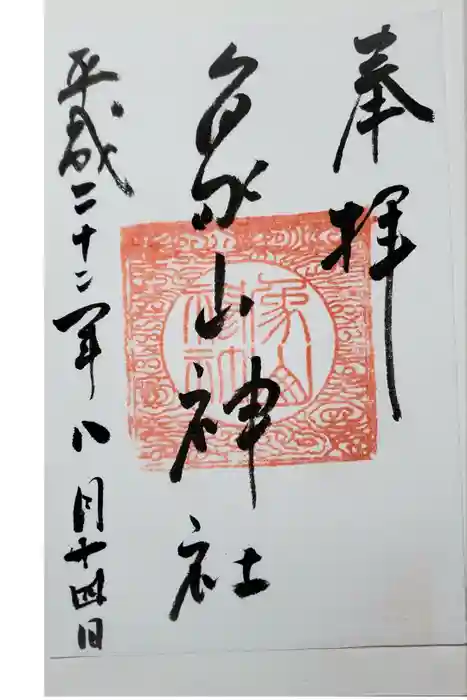 奉拝
象山神社
平成二十二年八月十四日
象山
神社